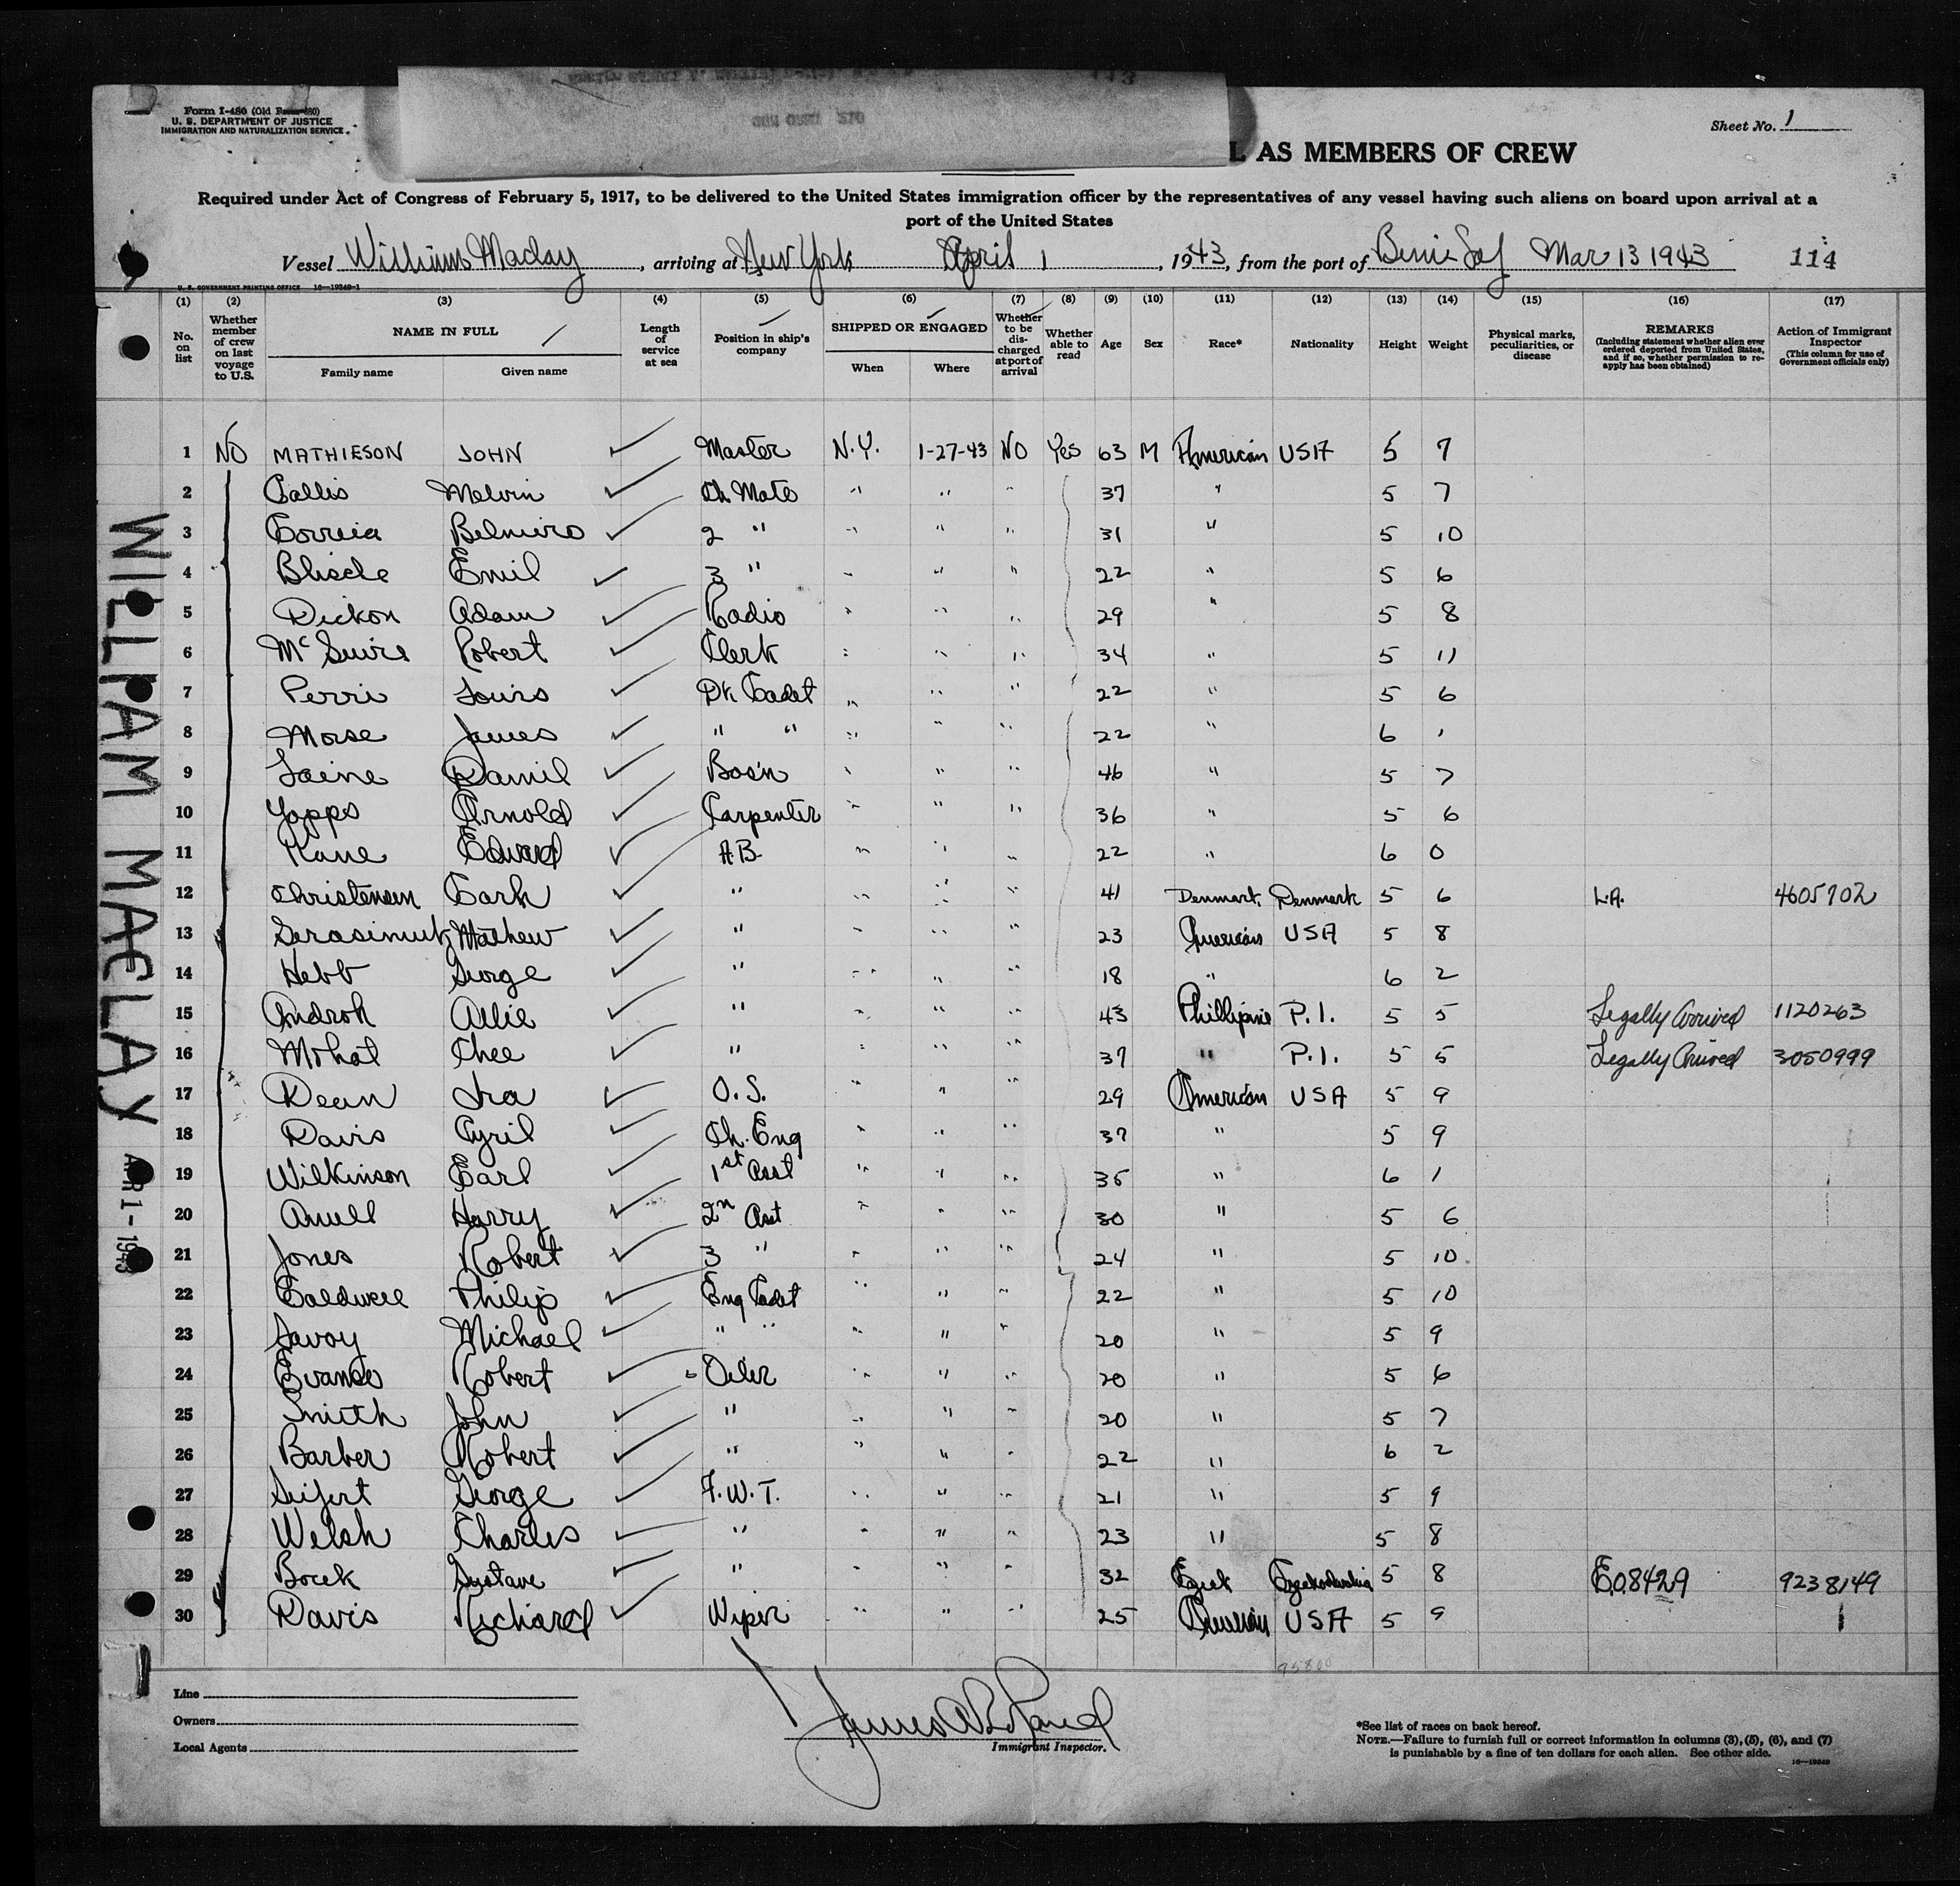 Form I-480 (Old Form 680)
U. S. DEPARTMENT OF JUSTICE
IMMIGRATION AND NATURALIZATION SERVICE
Sheet No. 1
L AS MEMBERS OF CREW
Required under Act of Congress of February 5, 1917, to be delivered to the United States immigration officer by the representatives of any vessel having such aliens on board upon arrival at a
port of the United States
Vessel William Maclay, arriving at New York April 1, 1943, from the port of Beni-Saf Mar 13 1943 114
U. S. GOVERNMENT PRINTING OFFICE 16—19349-1
(1) (2) (3) (4) (5) (6) (7) (8) (9) (10) (11) (12) (13) (14) (15) (16) (17)
No. on list
Whether member of crew on last voyage to U.S.
NAME IN FULL
Family name Given name
Length of service at sea
Position in ship's company
SHIPPED OR ENGAGED
When Where
Whether to be discharged at port of arrival
Whether able to read
Age
Sex
Race*
Nationality
Height
Weight
Physical marks, peculiarities, or disease
REMARKS
(Including statement whether alien ever ordered deported from United States, and if so, whether permission to re-apply has been obtained)
Action of Immigrant Inspector
(This column for use of Government officials only)
1 NO MATHIESON JOHN Master N.Y. 1-27-43 NO Yes 63 M American USA 5 7
2 Callis Melvin Ch Mate " " " 37 " 5 7
3 Correia Belmiro 2 " " " " 31 " 5 10
4 Emil 3 " " " " 22 " 5 6
5 Dickon Adam Radio " " " 29 " 5 8
6 McGuire Robert Clerk " " " 34 " 5 11
7 Perri Louis Dk Cadet " " " 22 " 5 6
8 Morse James " " " " " 22 " 6 1
9 Laine Daniel Bos'n " " " 46 " 5 7
10 Yapps Arnold Carpenter " " " 36 " 5 6
11 Kane Edward AB " " " 22 " 6 0
12 Christensen " " " " 41 Denmark Denmark 5 6 L.A. 4605702
13 Gerasimuk Mathew " " " " 23 American USA 5 8
14 Hebb George " " " " 18 " 6 2
15 Androh Allie " " " " 43 P.I. 5 5 Legally Arrived 1120263
16 Mohat Chee " " " " 37 " P.I. 5 5 Legally Arrived 3050999
17 Dean Ira O.S. " " " 29 American USA 5 9
18 Davis Cyril Ch. Eng " " " 37 " 5 9
19 Wilkinson Earl 1st Asst " " " 35 " 6 1
20 Harry 2n Asst " " " 30 " 5 6
21 Jones Robert 3 " " " " 24 " 5 10
22 Caldwell Philip Eng Cadet " " " 22 " 5 10
23 Savoy Michael " " " " " 20 " 5 9
24 Evans Robert Oiler " " " 20 " 5 6
25 Smith John " " " " 20 " 5 7
26 Barber Robert " " " " 22 " 6 2
27 Seifert George F.W.T. " " " 21 " 5 9
28 Welsh Charles " " " " 23 " 5 8
29 Bocek Gustave " " " " 32 Czek 5 8 E08429 9238149
30 Davis Richard Wiper " " " 25 American USA 5 9
95800
WILLIAM MACLAY APR 1-1943
Line
Owners
Local Agents
Immigrant Inspector.
*See list of races on back hereof.
NOTE.—Failure to furnish full or correct information in columns (3), (5), (6), and (7)
is punishable by a fine of ten dollars for each alien. See other side.
16—19349